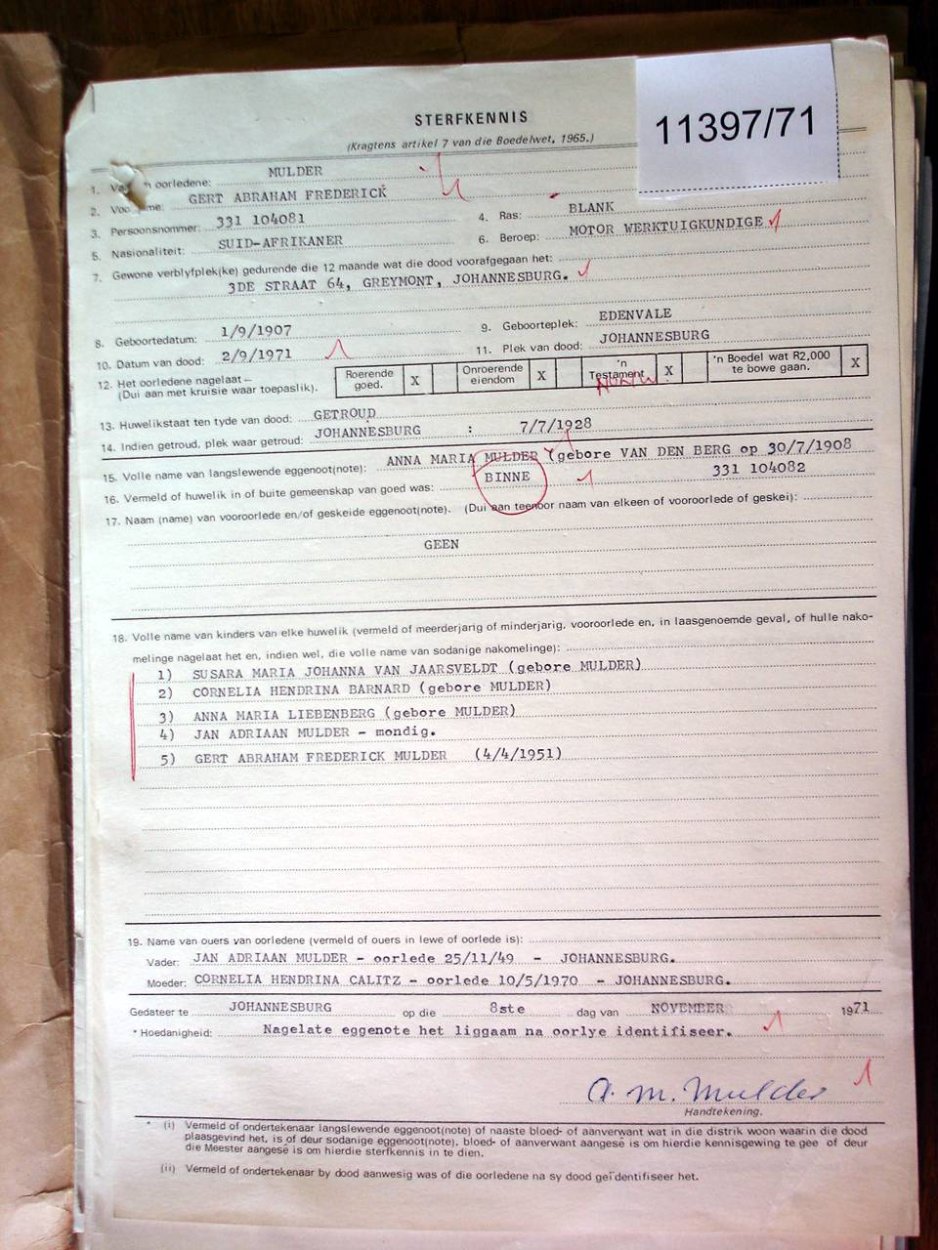 11397/71
STERFKENNIS
(Kragtens artikel 7 van die Boedelwet, 1965.)
1. oorledene: MULDER
2. GERT ABRAHAM FREDERICK
3. Persoonsnommer: 331 104081 4. Ras: BLANK
5. Nasionaliteit: SUID-AFRIKANER 6. Beroep: MOTOR WERKTUIGKUNDIGE
7. Gewone verblyfplek(ke) gedurende die 12 maande wat die dood voorafgegaan het:
3DE STRAAT 64, GREYMONT, JOHANNESBURG.
8. Geboortedatum: 1/9/1907 9. Geboorteplek: EDENVALE
10. Datum van dood: 2/9/1971 11. Plek van dood: JOHANNESBURG
12. Het oorledene nagelaat— Roerende goed. X Onroerende eiendom X 'n Testament X 'n Boedel wat R2,000 te bowe gaan. X
(Dui aan met kruisie waar toepaslik).
13. Huwelikstaat ten tyde van dood: GETROUD
14. Indien getroud, plek waar getroud: JOHANNESBURG : 7/7/1928
15. Volle name van langslewende eggenoot(note): ANNA MARIA MULDER (gebore VAN DEN BERG op 30/7/1908
16. Vermeld of huwelik in of buite gemeenskap van goed was: BINNE 331 104082
17. Naam (name) van vooroorlede en/of geskeide eggenoot(note). (Dui aan teenoor naam van elkeen of vooroorlede of geskei):
GEEN
18. Volle name van kinders van elke huwelik (vermeld of meerderjarig of minderjarig, vooroorlede en, in laasgenoemde geval, of hulle nako-
melinge nagelaat het en, indien wel, die volle name van sodanige nakomelinge):
1) SUSARA MARIA JOHANNA VAN JAARSVELDT (gebore MULDER)
2) CORNELIA HENDRINA BARNARD (gebore MULDER)
3) ANNA MARIA LIEBENBERG (gebore MULDER)
4) JAN ADRIAAN MULDER - mondig.
5) GERT ABRAHAM FREDERICK MULDER (4/4/1951)
19. Name van ouers van oorledene (vermeld of ouers in lewe of oorlede is):
Vader: JAN ADRIAAN MULDER - oorlede 25/11/49 - JOHANNESBURG.
Moeder: CORNELIA HENDRINA CALITZ - oorlede 10/5/1970 - JOHANNESBURG.
Gedateer te JOHANNESBURG op die 8ste dag van NOVEMBER 1971
* Hoedanigheid: Nagelate eggenote het liggaam na oorlye identifiseer.
A. M. Mulder
Handtekening.
* (i) Vermeld of ondertekenaar langslewende eggenoot(note) of naaste bloed- of aanverwant wat in die distrik woon waarin die dood
plaasgevind het, is of deur sodanige eggenoot(note), bloed- of aanverwant aangesê is om hierdie kennisgewing te gee of deur
die Meester aangesê is om hierdie sterfkennis in te dien.
(ii) Vermeld of ondertekenaar by dood aanwesig was of die oorledene na sy dood geïdentifiseer het.